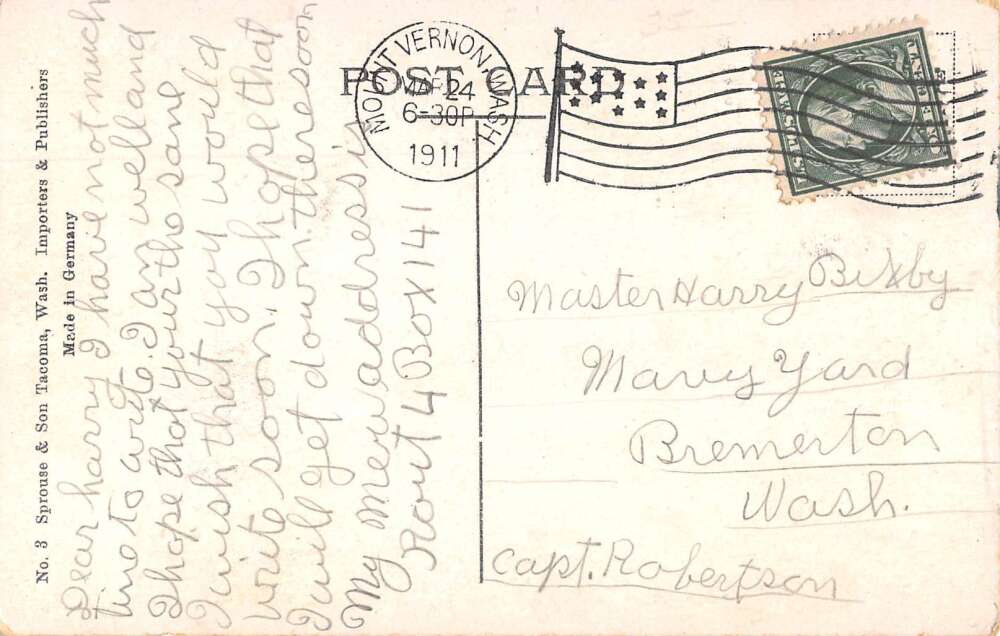 No. 3 Sprouse & Son Tacoma, Wash. Importers & Publishers
Made in Germany
POST CARD
MOUNT VERNON, WASH.
MAR 24
6-30P
1911
Dear harry I have not much
time to writ. I am well and
I hope that your the same
I wish that you would
writ soon. I hope that
I will get down there soon
My new address is
Rout 4 Box 141
Master Harry Bixby
Navy Yard
Bremerton
Wash.
Capt. Robertson